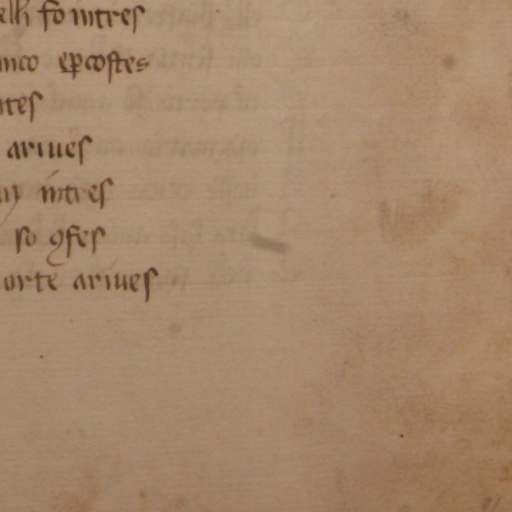 elh fo intres
nco eꝑcostes
ntes
arives
uy intres
so ꝯfes
orte arives